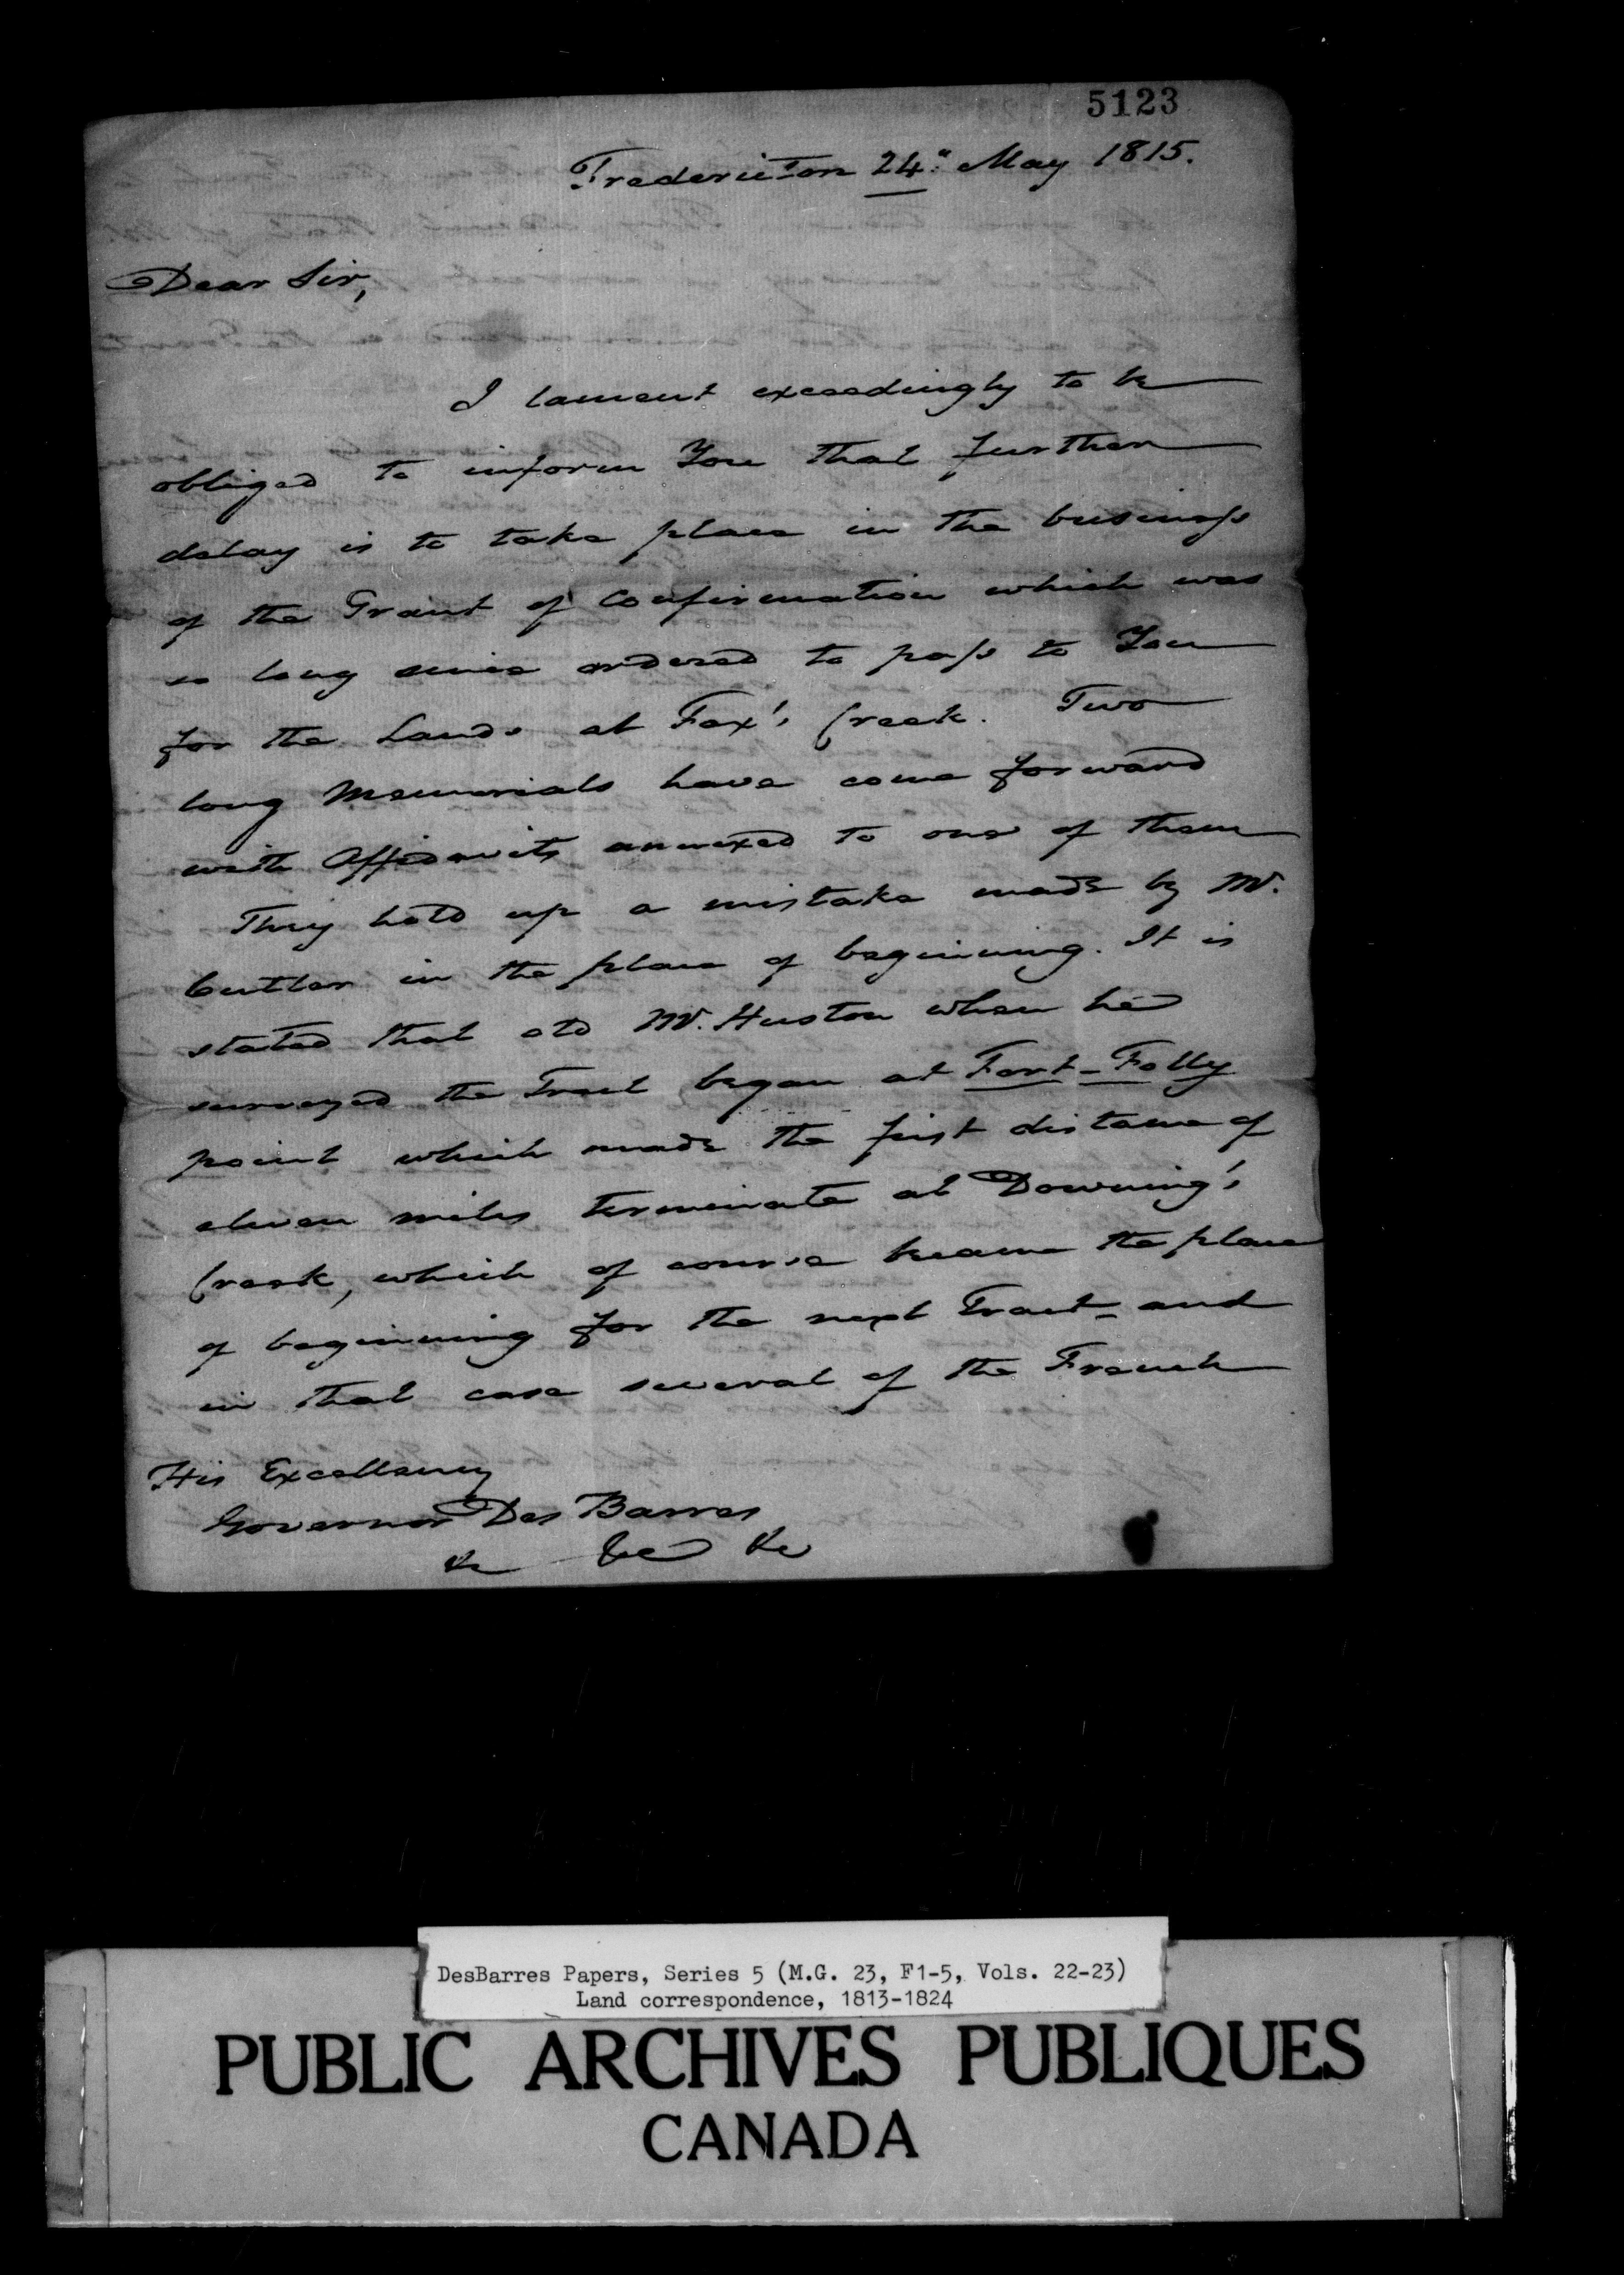 5123
Fredericton 24th May 1815.
Dear Sir,
I lament exceedingly to be
obliged to inform You that further
delay is to take place in the business
of the Grant of Confirmation which was
so long since ordered to pass to You
for the Lands at Fox's Creek. Two
long Memorials have come forward
with Affidavits annexed to one of them
They hold up a mistake made by Mr.
Cutler in the place of beginning. It is
stated that old Mr. Huston when he
surveyed the Tract began at Fort-Folly
point which made the first distance of
eleven miles terminate at Downing's
Creek, which of course became the place
of beginning for the next Tract - and
in that case several of the French
His Excellency
Governor Des Barres
&c &c &c
DesBarres Papers, Series 5 (M.G. 23, F1-5, Vols. 22-23)
Land correspondence, 1813-1824
PUBLIC ARCHIVES PUBLIQUES
CANADA